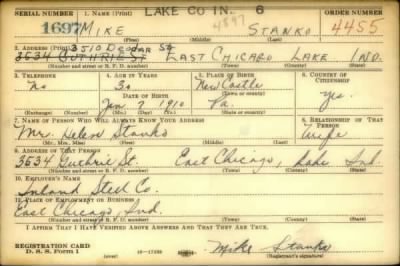 SERIAL NUMBER 1. NAME (Print) LAKE CO IN. 6 ORDER NUMBER
1697 MIKE 4597 STANKO 4455
(First) (Middle) (Last)
2. ADDRESS (Print) 3510 Deodar St
3634 GUTHRIE ST EAST CHICAGO LAKE IND.
(Number and street or R. F. D. number) (Town) (County) (State)
3. TELEPHONE 4. AGE IN YEARS 5. PLACE OF BIRTH 6. COUNTRY OF CITIZENSHIP
No 30 New Castle
DATE OF BIRTH (Town or county)
Jan 7 1910 Pa. Yes.
(Exchange) (Number) (Mo.) (Day) (Yr.) (State or country)
7. NAME OF PERSON WHO WILL ALWAYS KNOW YOUR ADDRESS 8. RELATIONSHIP OF THAT PERSON
Mr. Helen Stanko Wife
(Mr., Mrs., Miss) (First) (Middle) (Last)
9. ADDRESS OF THAT PERSON
3634 Guthrie St. East Chicago, Lake Ind.
(Number and street or R. F. D. number) (Town) (County) (State)
10. EMPLOYER'S NAME
Inland Steel Co.
11. PLACE OF EMPLOYMENT OR BUSINESS
East Chicago Ind.
(Number and street or R. F. D. number) (Town) (County) (State)
I AFFIRM THAT I HAVE VERIFIED ABOVE ANSWERS AND THAT THEY ARE TRUE.
REGISTRATION CARD
D. S. S. Form 1 (over) 16-17105 Mike Stanko
(Registrant's signature)